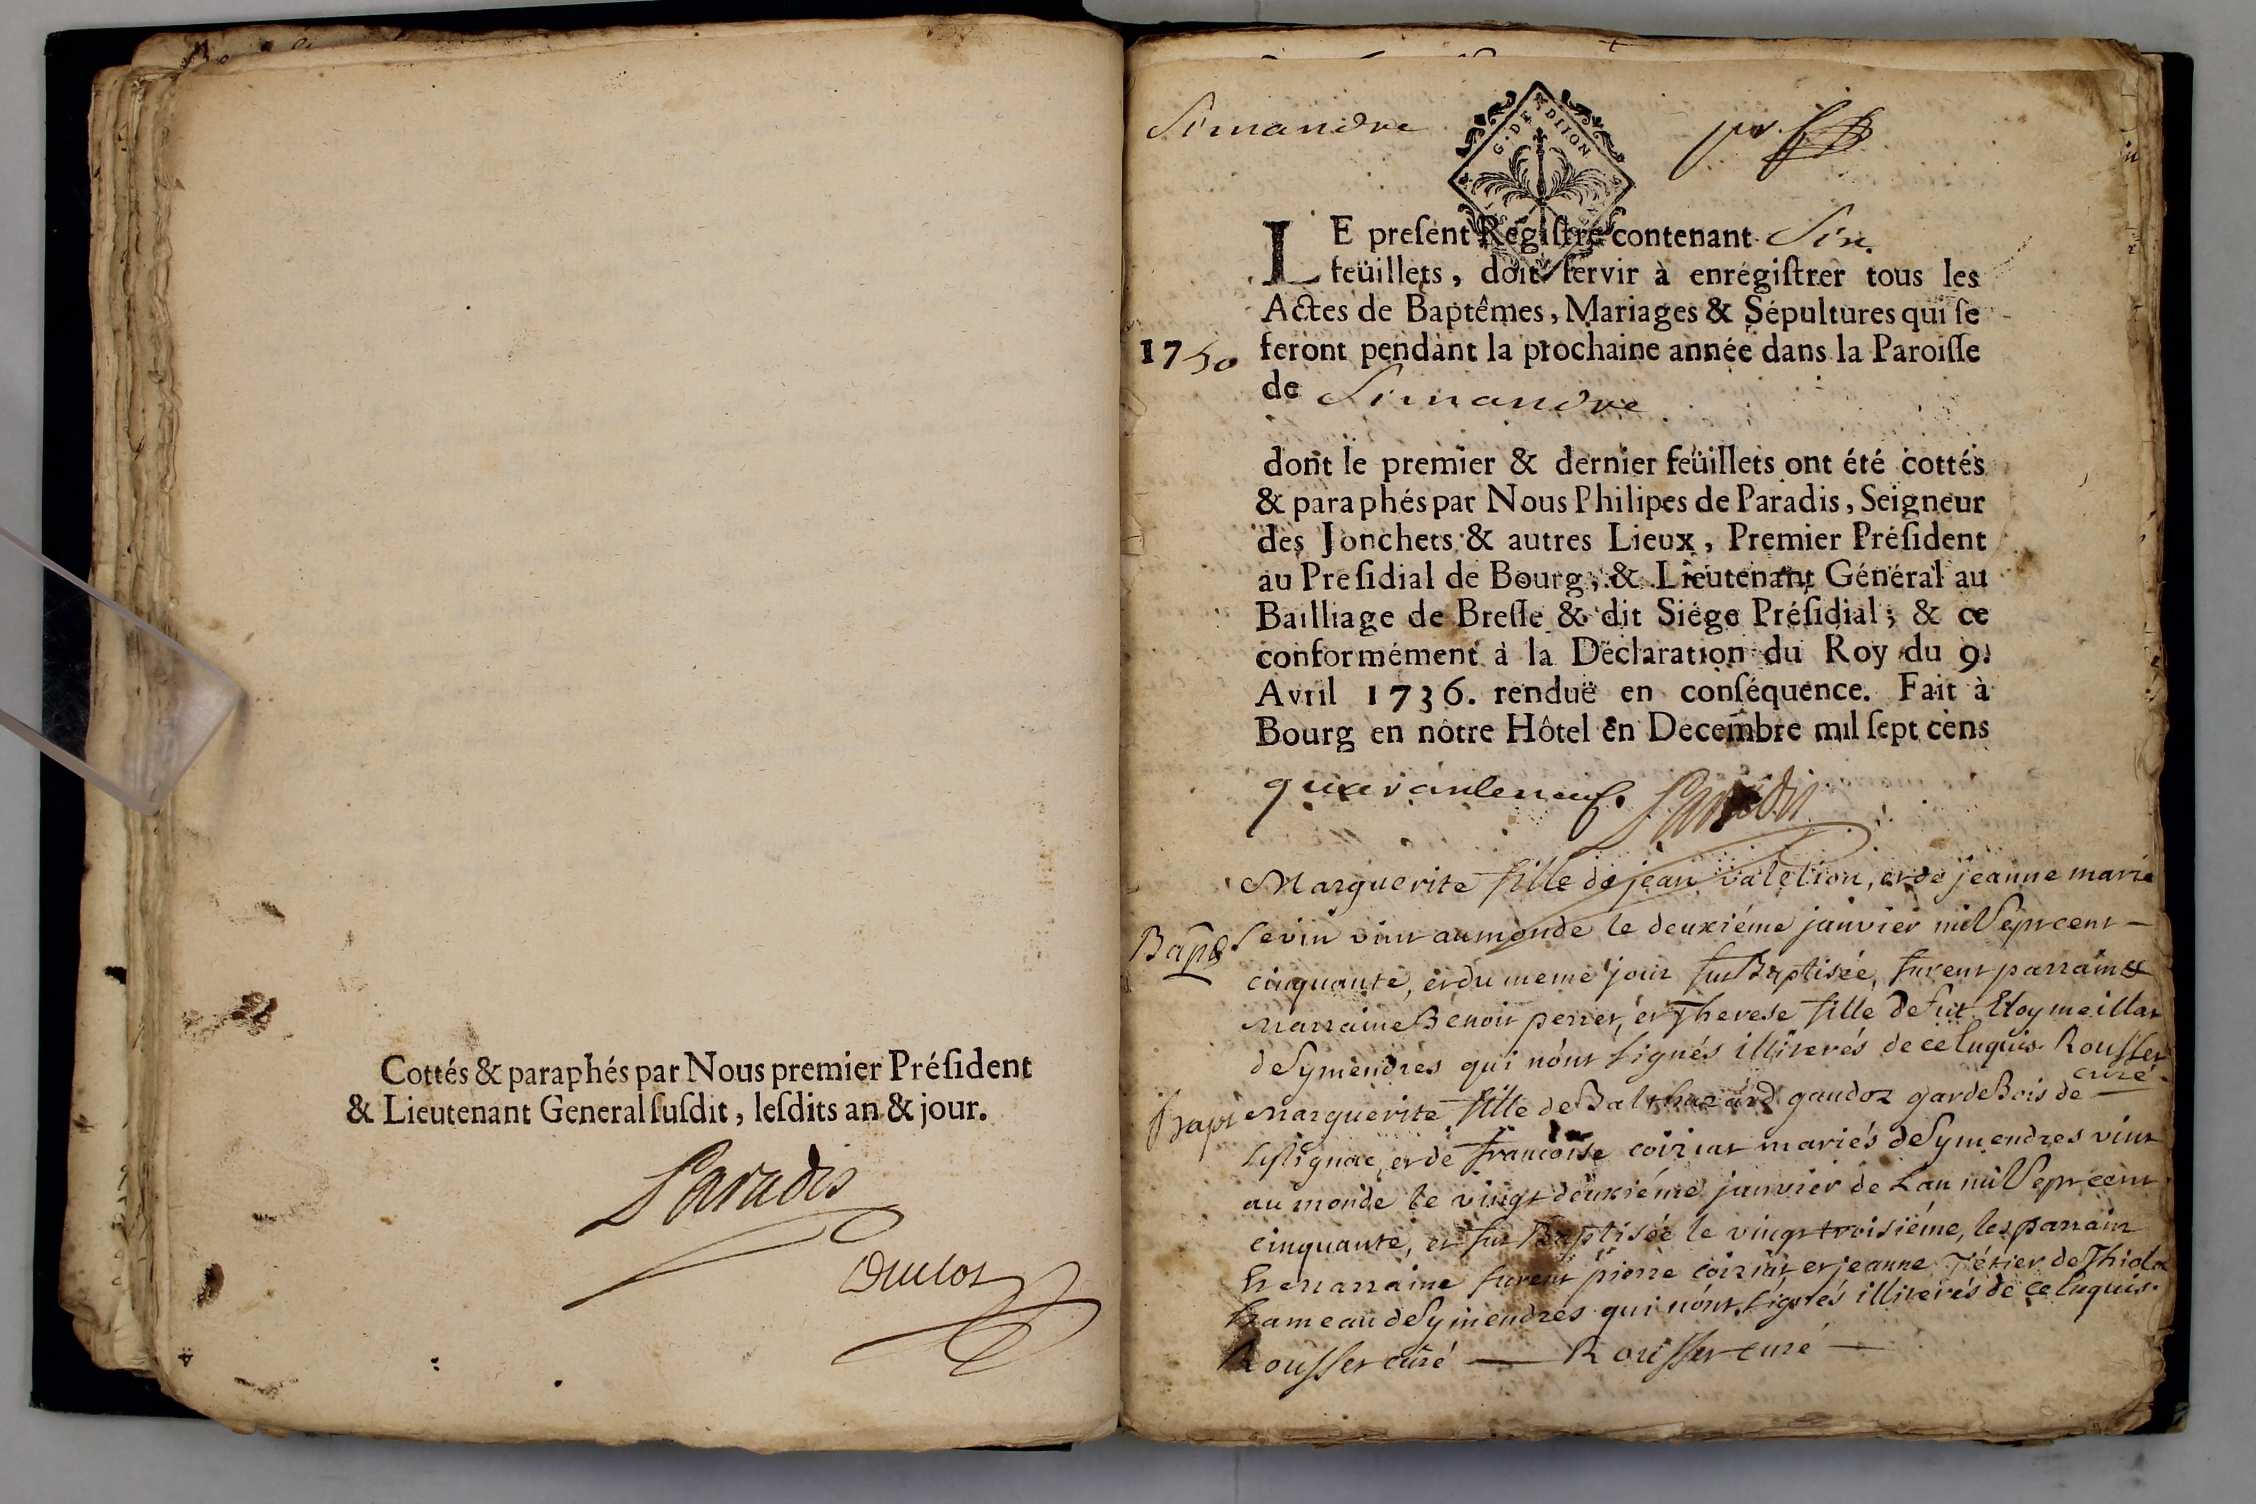 Cottés & paraphés par Nous premier Préſident
& Lieutenant General ſuſdit, leſdits an & jour.
Paradis
Duclos
Simandre
G. DE DIION
LE preſent Regiſtre contenant Six
feüillets, doit ſervir à enrégiſtrer tous les
Actes de Baptêmes, Mariages & Sépultures qui ſe
1750 feront pendant la prochaine année dans la Paroiſſe
de Simandre
dont le premier & dernier feüillets ont été cottés
& paraphés par Nous Philipes de Paradis, Seigneur
des Jonchets & autres Lieux, Premier Préſident
au Preſidial de Bourg, & Lieutenant Général au
Bailliage de Breſſe & dit Siége Préſidial; & ce
conformément à la Déclaration du Roy du 9.
Avril 1736. renduë en conſéquence. Fait à
Bourg en nôtre Hôtel en Decembre mil ſept cens
quaranteneuf. Paradis
Marguerite fille de jean valetion, et de jeanne marie
Bapt sevin vint au monde le deuxiéme janvier mil sept cent
cinquante, et du meme jour fut Baptisée, furent parrain &
marraine Benoit perret, et Therese fille de fut Eloy meillat
de Symendres qui n'ont signés illiterés de ce enquis. Rousset
curé
Bapt Marguerite fille de Balthazard gaudoz garde Bois de
et de francoise coiziat mariés de Symendres vint
au monde le vingt deuxiéme janvier de L'an mil sept cent
cinquante, et fut Baptisée le vingt troisiéme, les parrain
& marraine furent pierre coiziat et jeanne de Thiola
hameau de Symendres qui n'ont signés illiterés de ce enquis.
Rousset curé — Rousset curé —